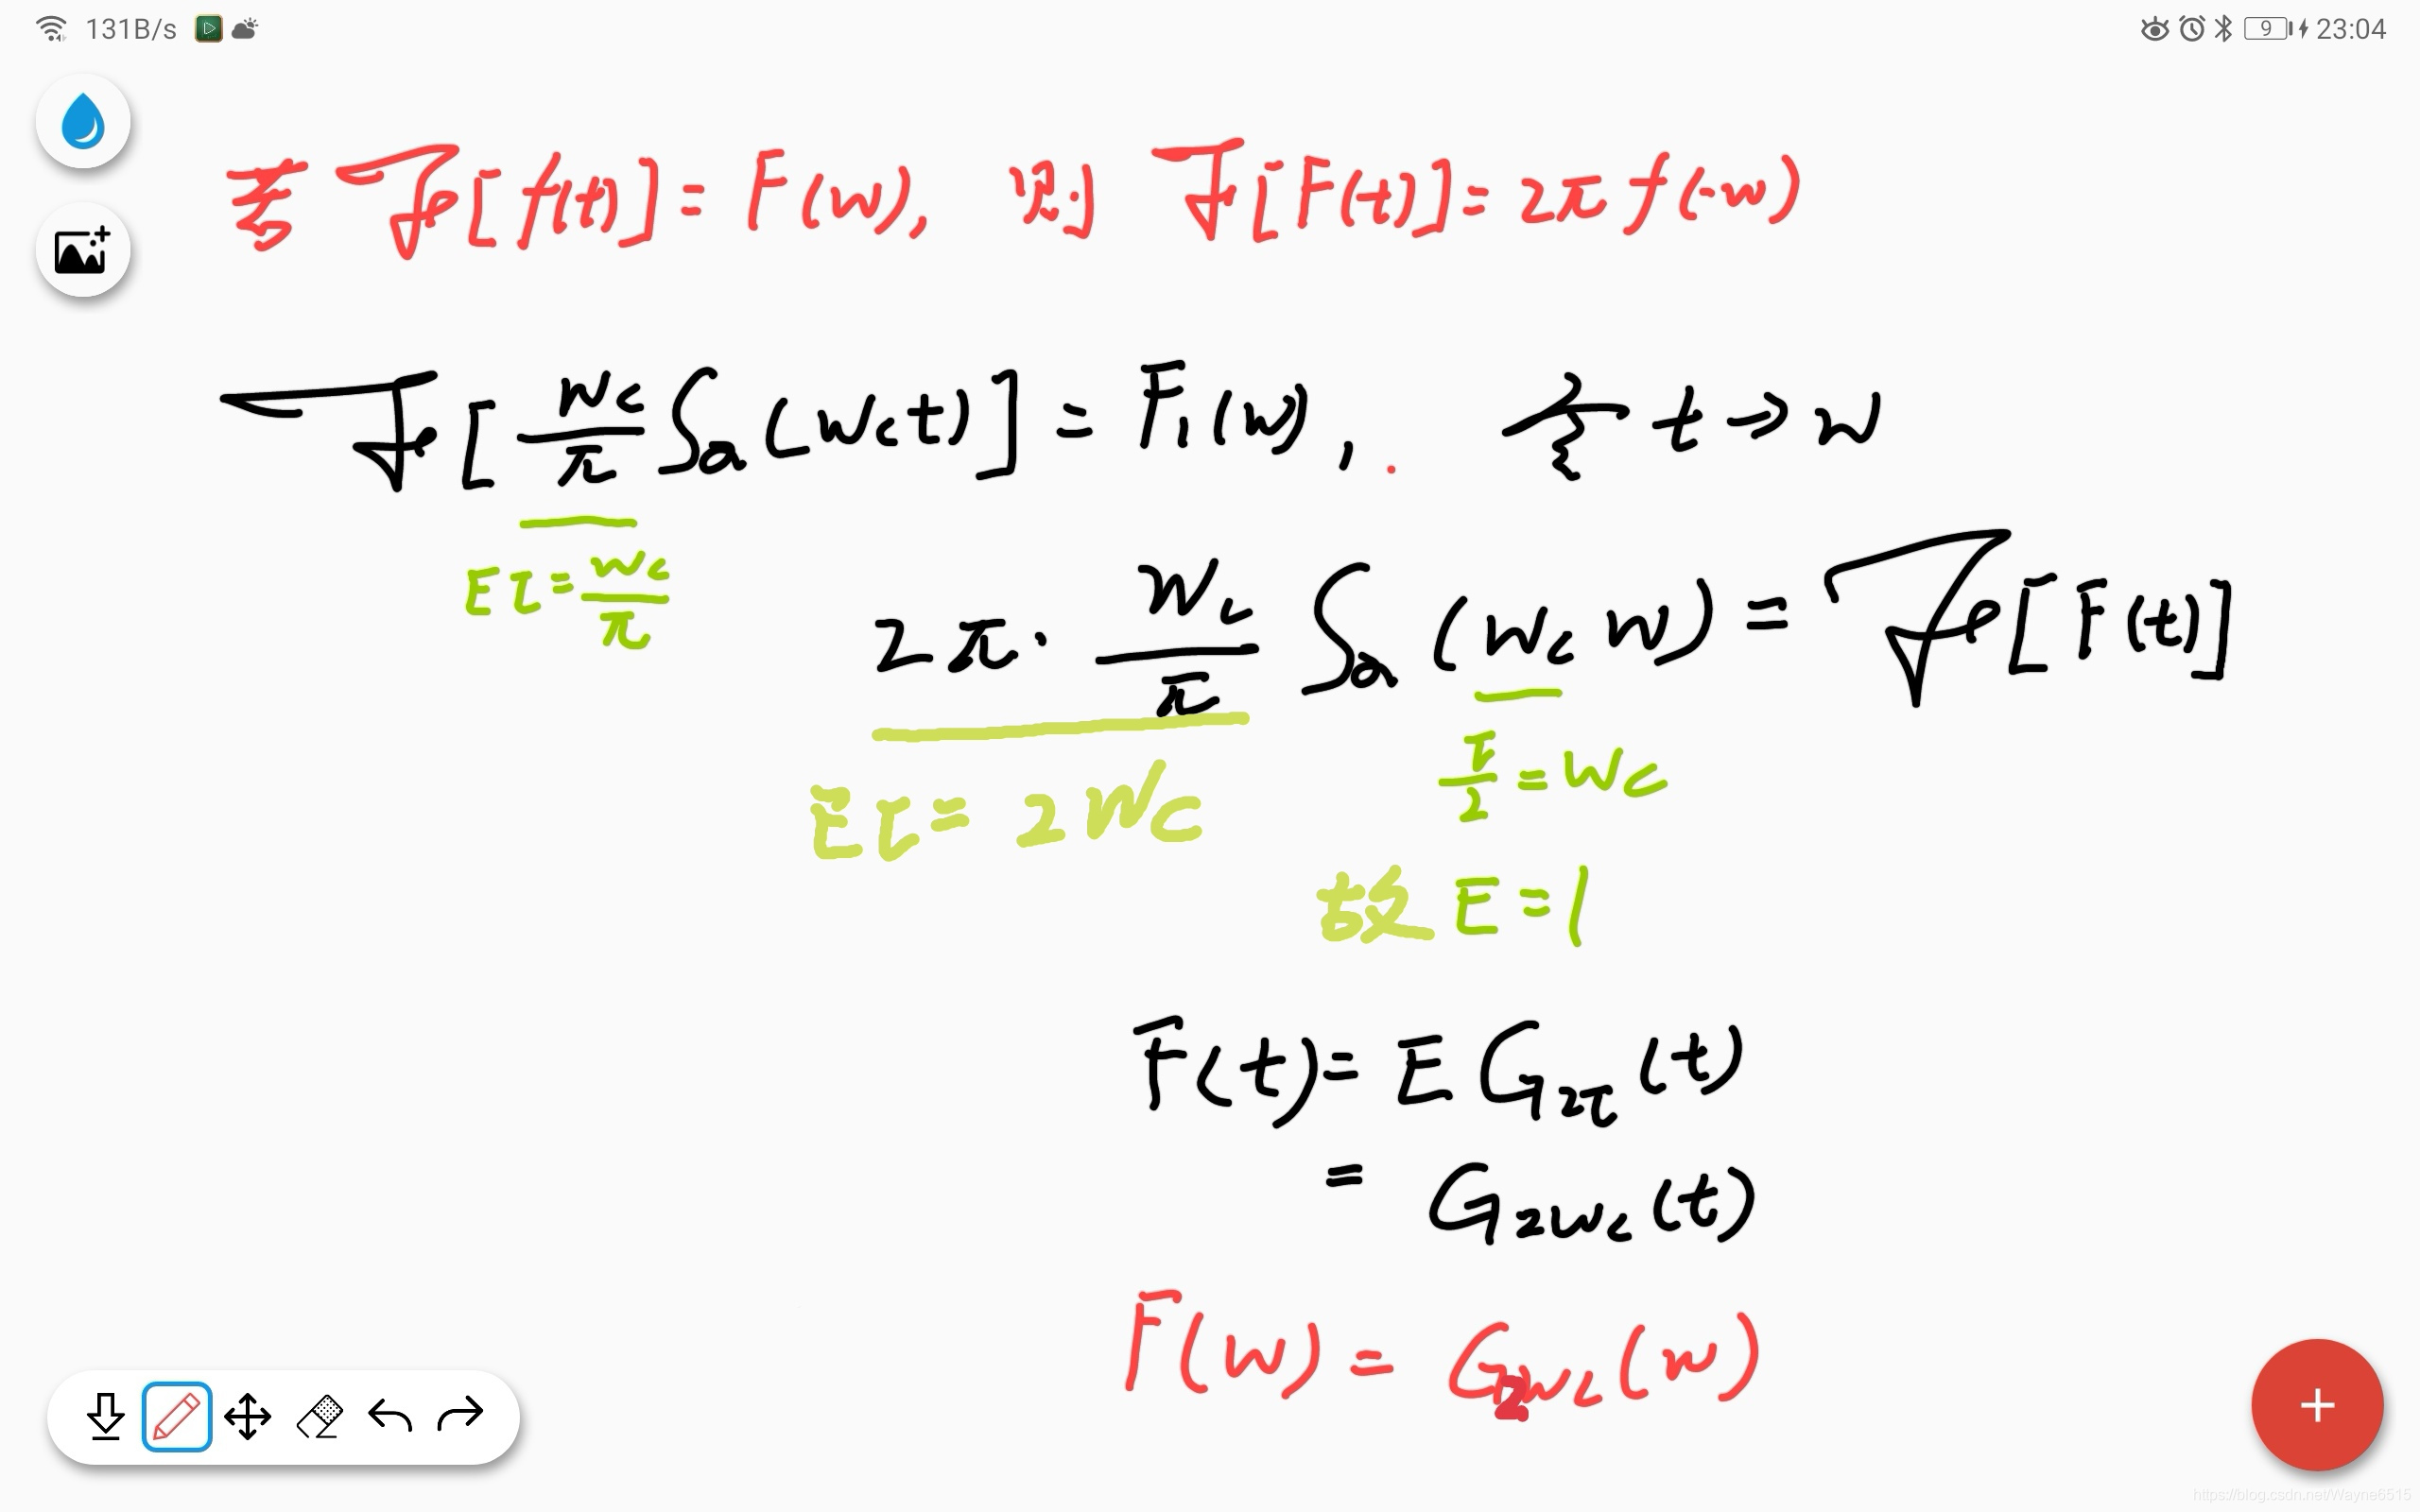 131B/s 9 23:04
若 ℱ[f(t)] = F(w), 则 ℱ[F(t)] = 2π f(-w)
ℱ[Wc/π Sa(Wct)] = F₁(w), 令 t → w
Eτ = Wc/π
2π · Wc/π Sa(Wc w) = ℱ[F(t)]
τ/2 = Wc
Eτ = 2Wc
故 E = 1
F(t) = E G₂τ(t)
= G₂wc(t)
F(w) = G₂wc(w)
https://blog.csdn.net/Wayne6515